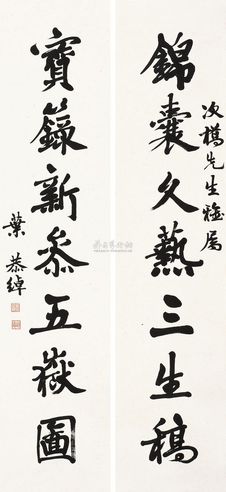 次楳先生雅屬
錦囊久爇三生稿
寶籙新參五嶽圖
葉恭綽